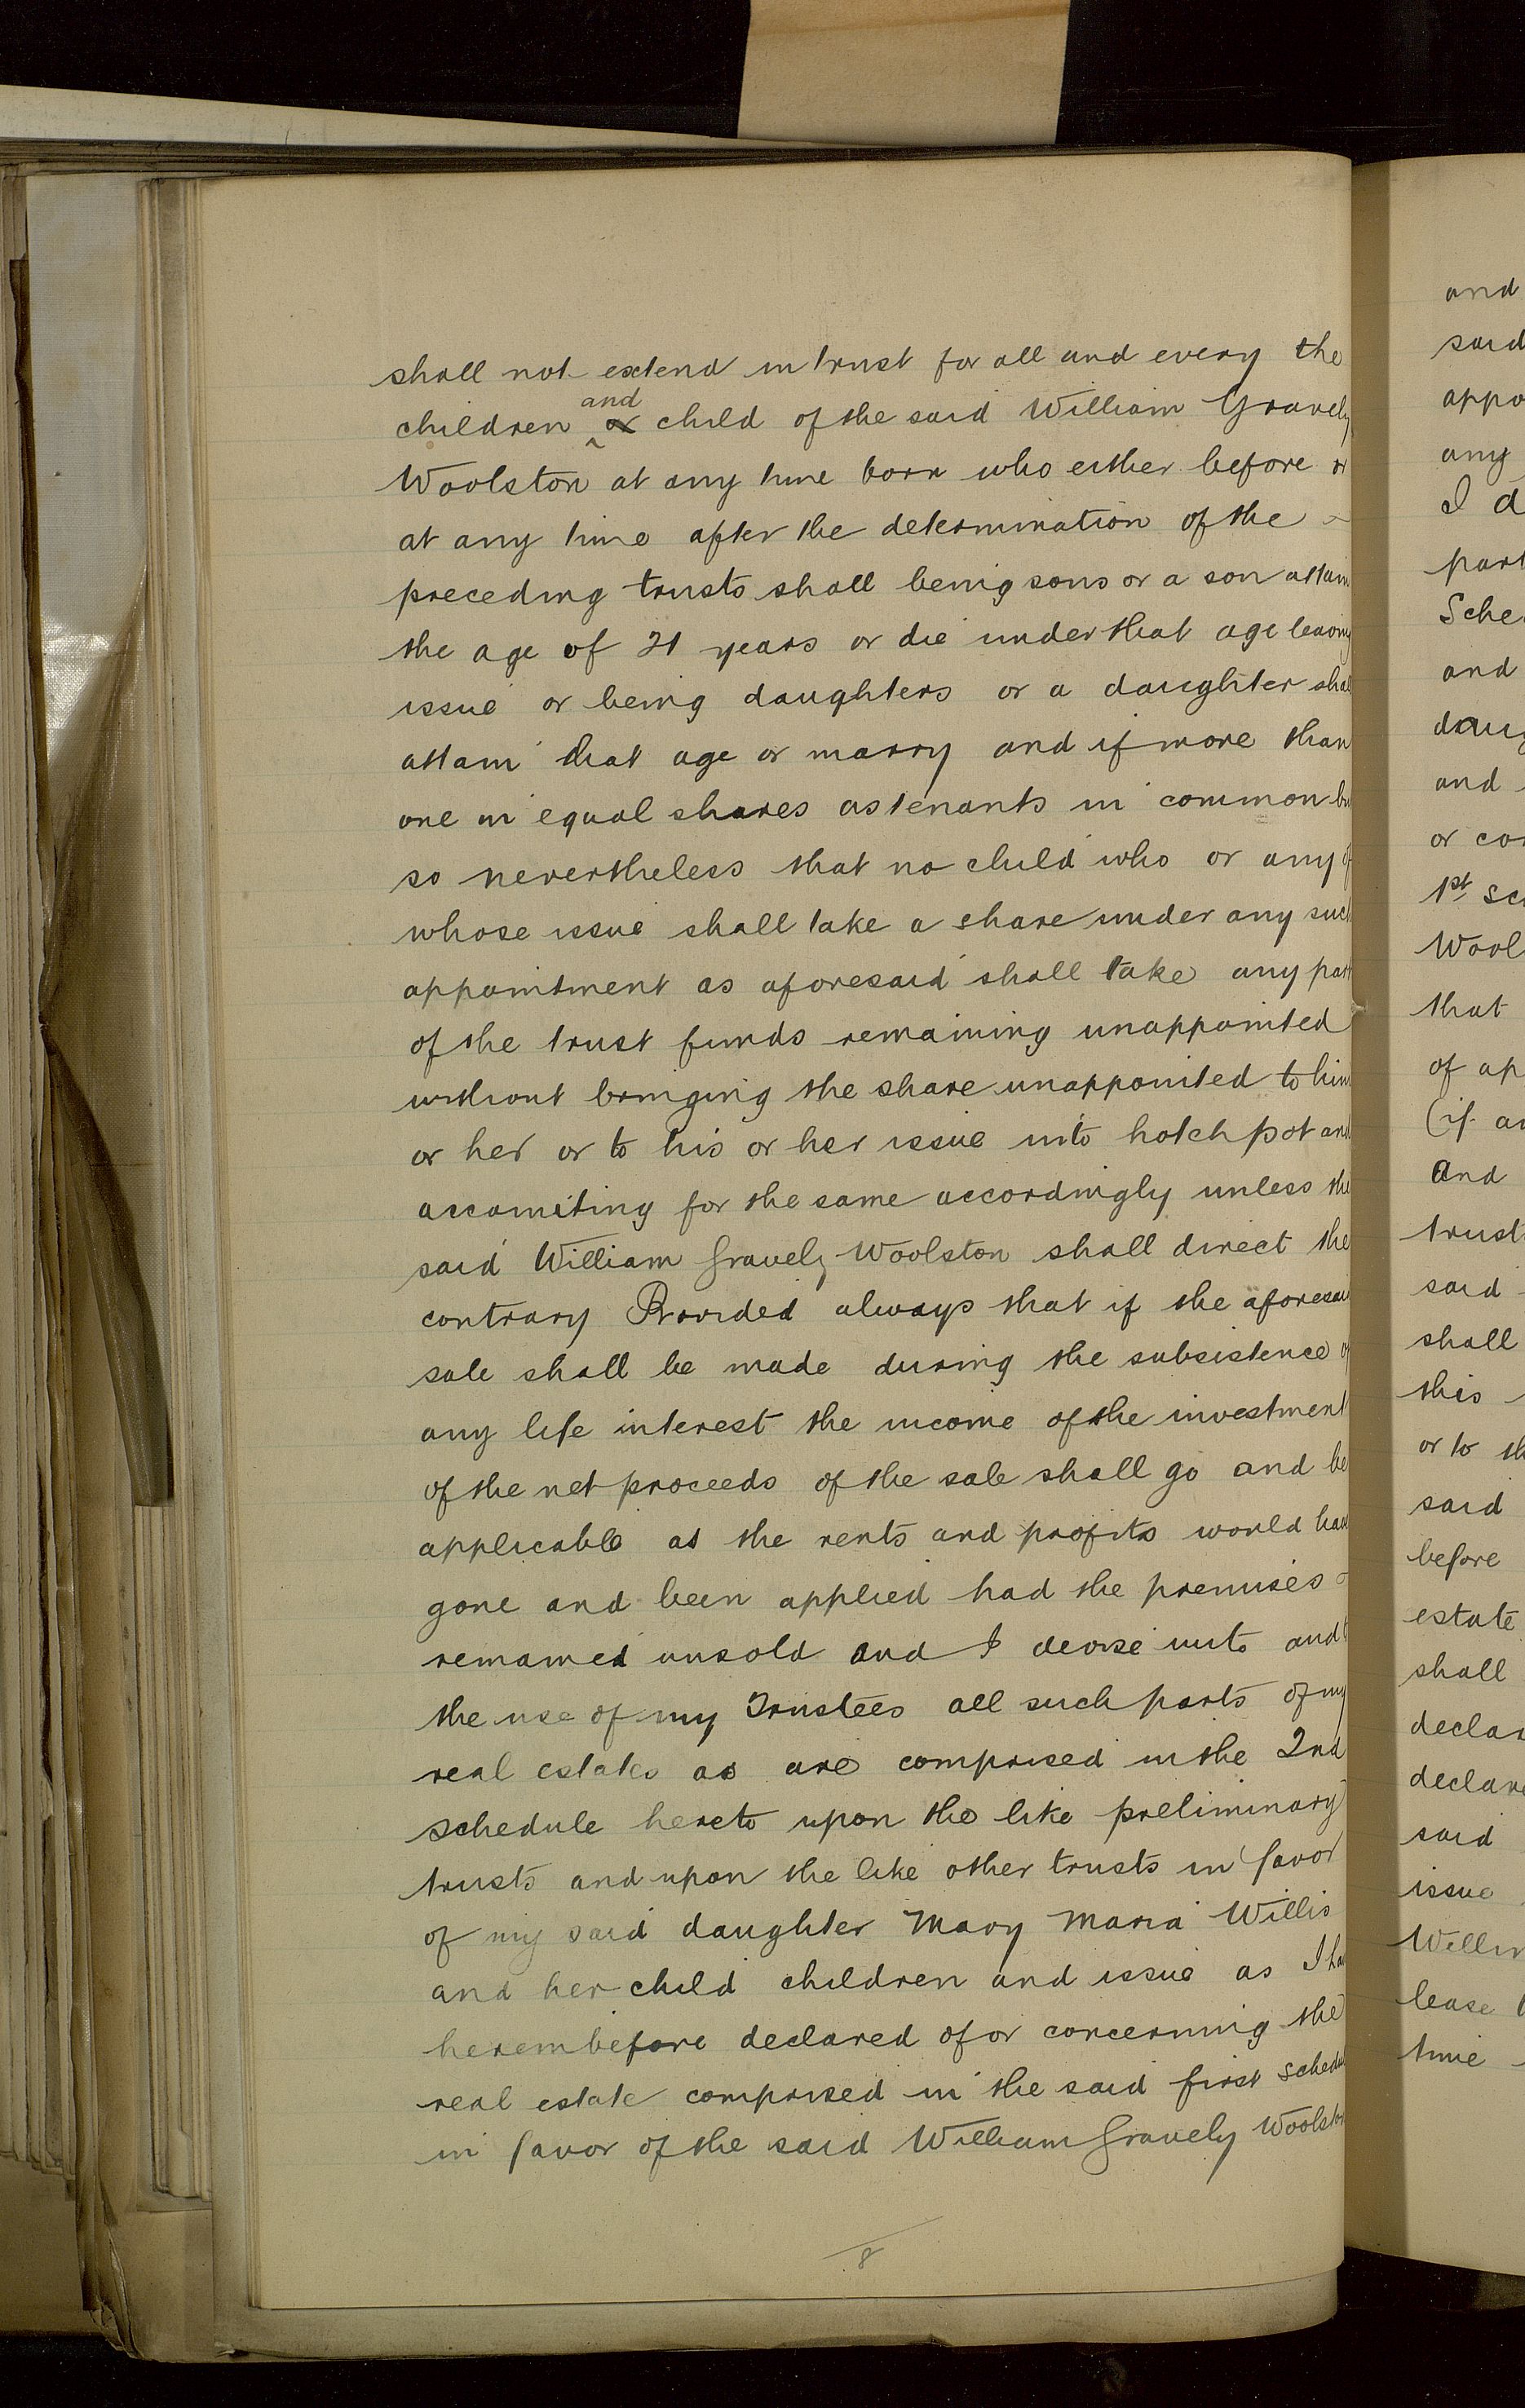 shall not extend in trust for all and every the
and
children or child of the said William Gravely
Woolston at any time born who either before or
at any time after the determination of the
preceding trusts shall being sons or a son attain
the age of 21 years or die under that age leaving
issue or being daughters or a daughter shal
attain that age or marry and if more than
one in equal shares as tenants in common bu
so nevertheless that no child who or any of
whose issue shall take a share under any such
appointment as aforesaid shall take any part
of the trust funds remaining unappointed
without bringing the share unappointed to him
or her or to his or her issue into hotchpot and
accounting for the same accordingly unless the
said William Gravely Woolston shall direct the
contrary Provided always that if the aforesai
sale shall be made during the subsistence of
any life interest the income of the investment
of the net proceeds of the sale shall go and be
applicable as the rents and profits would have
gone and been applied had the premises
remained unsold and I devise unto and t
the use of my Trustees all such parts of my
real estates as are comprised in the 2nd
schedule hereto upon the like preliminary
trusts and upon the like other trusts in favor
of my said daughter Mary Maria Willis
and her child children and issue as I ha
hereinbefore declared of or concerning the
real estate comprised in the said first Schedul
in favor of the said William Gravely Woolston
8
and
said
appo
any
I d
part
Sche
and
daug
and
or con
1st Sc
Wool
that
of ap
(if an
and
trust
said
shall
this
or to th
said
before
estate
shall
declar
declare
said
issue
William
lease
time